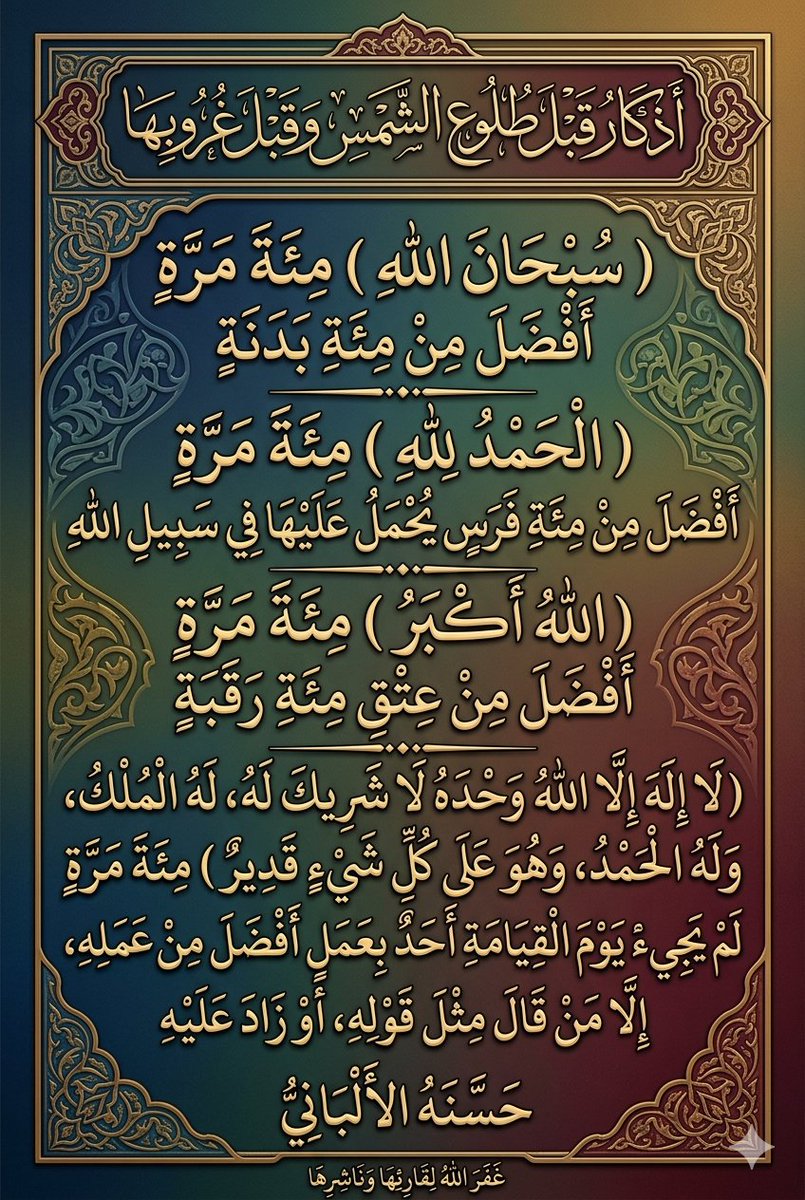 أَذْكَارُ قَبْلَ طُلُوعِ الشَّمْسِ وَقَبْلَ غُرُوبِهَا
( سُبْحَانَ اللهِ ) مِئَةَ مَرَّةٍ
أَفْضَلَ مِنْ مِئَةِ بَدَنَةٍ
( الْحَمْدُ لِلهِ ) مِئَةَ مَرَّةٍ
أَفْضَلَ مِنْ مِئَةِ فَرَسٍ يُحْمَلُ عَلَيْهَا فِي سَبِيلِ اللهِ
( اللهُ أَكْبَرُ ) مِئَةَ مَرَّةٍ
أَفْضَلَ مِنْ عِتْقِ مِئَةِ رَقَبَةٍ
(لَا إِلَهَ إِلَّا اللهُ وَحْدَهُ لَا شَرِيكَ لَهُ، لَهُ الْمُلْكُ،
وَلَهُ الْحَمْدُ، وَهُوَ عَلَى كُلِّ شَيْءٍ قَدِيرٌ) مِئَةَ مَرَّةٍ
لَمْ يَجِيءْ يَوْمَ الْقِيَامَةِ أَحَدٌ بِعَمَلٍ أَفْضَلَ مِنْ عَمَلِهِ،
إِلَّا مَنْ قَالَ مِثْلَ قَوْلِهِ، أَوْ زَادَ عَلَيْهِ
حَسَّنَهُ الأَلْبَانِيُّ
غَفَرَ اللهُ لِقَارِئِهَا وَنَاشِرِهَا